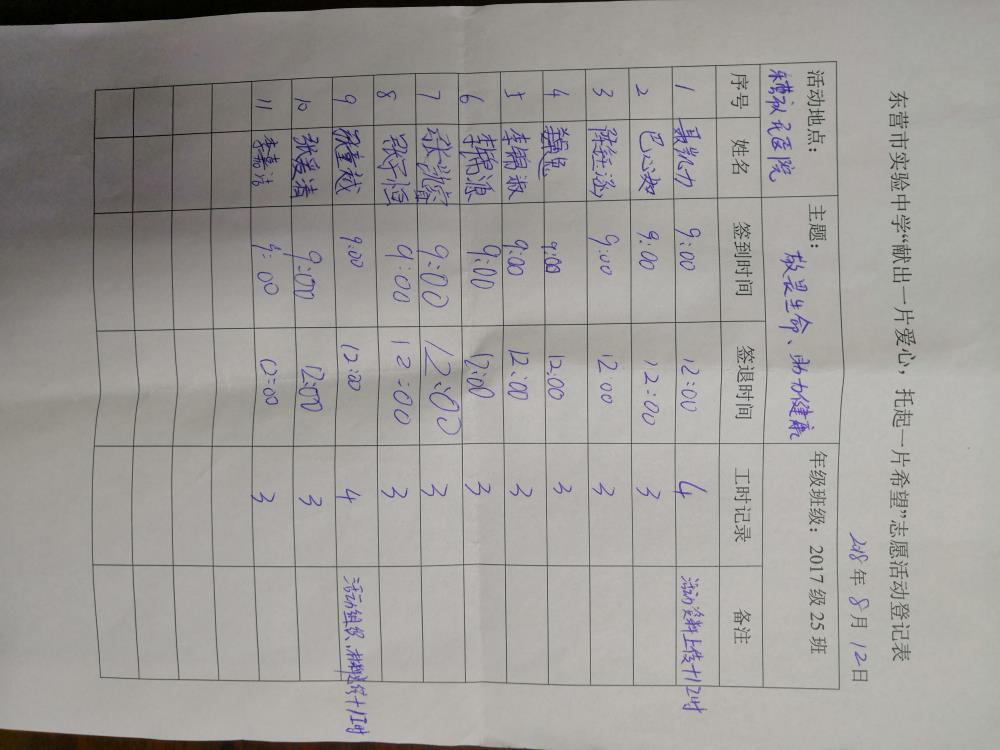 东营市实验中学“献出一片爱心，托起一片希望”志愿活动登记表
2018年8月12日
活动地点： 主题： 敬畏生命、助力健康 年级班级：2017级25班
医院
序号 姓名 签到时间 签退时间 工时记录 备注
1 聂凯力 9:00 12:00 4 活动资料上传+1小时
2 巴心如 9:00 12:00 3
3 9:00 12:00 3
4 9:00 12:00 3
5 李锦淑 9:00 12:00 3
6 李锦源 9:00 12:00 3
7 张凯睿 9:00 12:00 3
8 张子恒 9:00 12:00 3
9 9:00 12:00 4 活动组织、+1小时
10 张爱清 9:00 12:00 3
11 李嘉洁 9:00 12:00 3